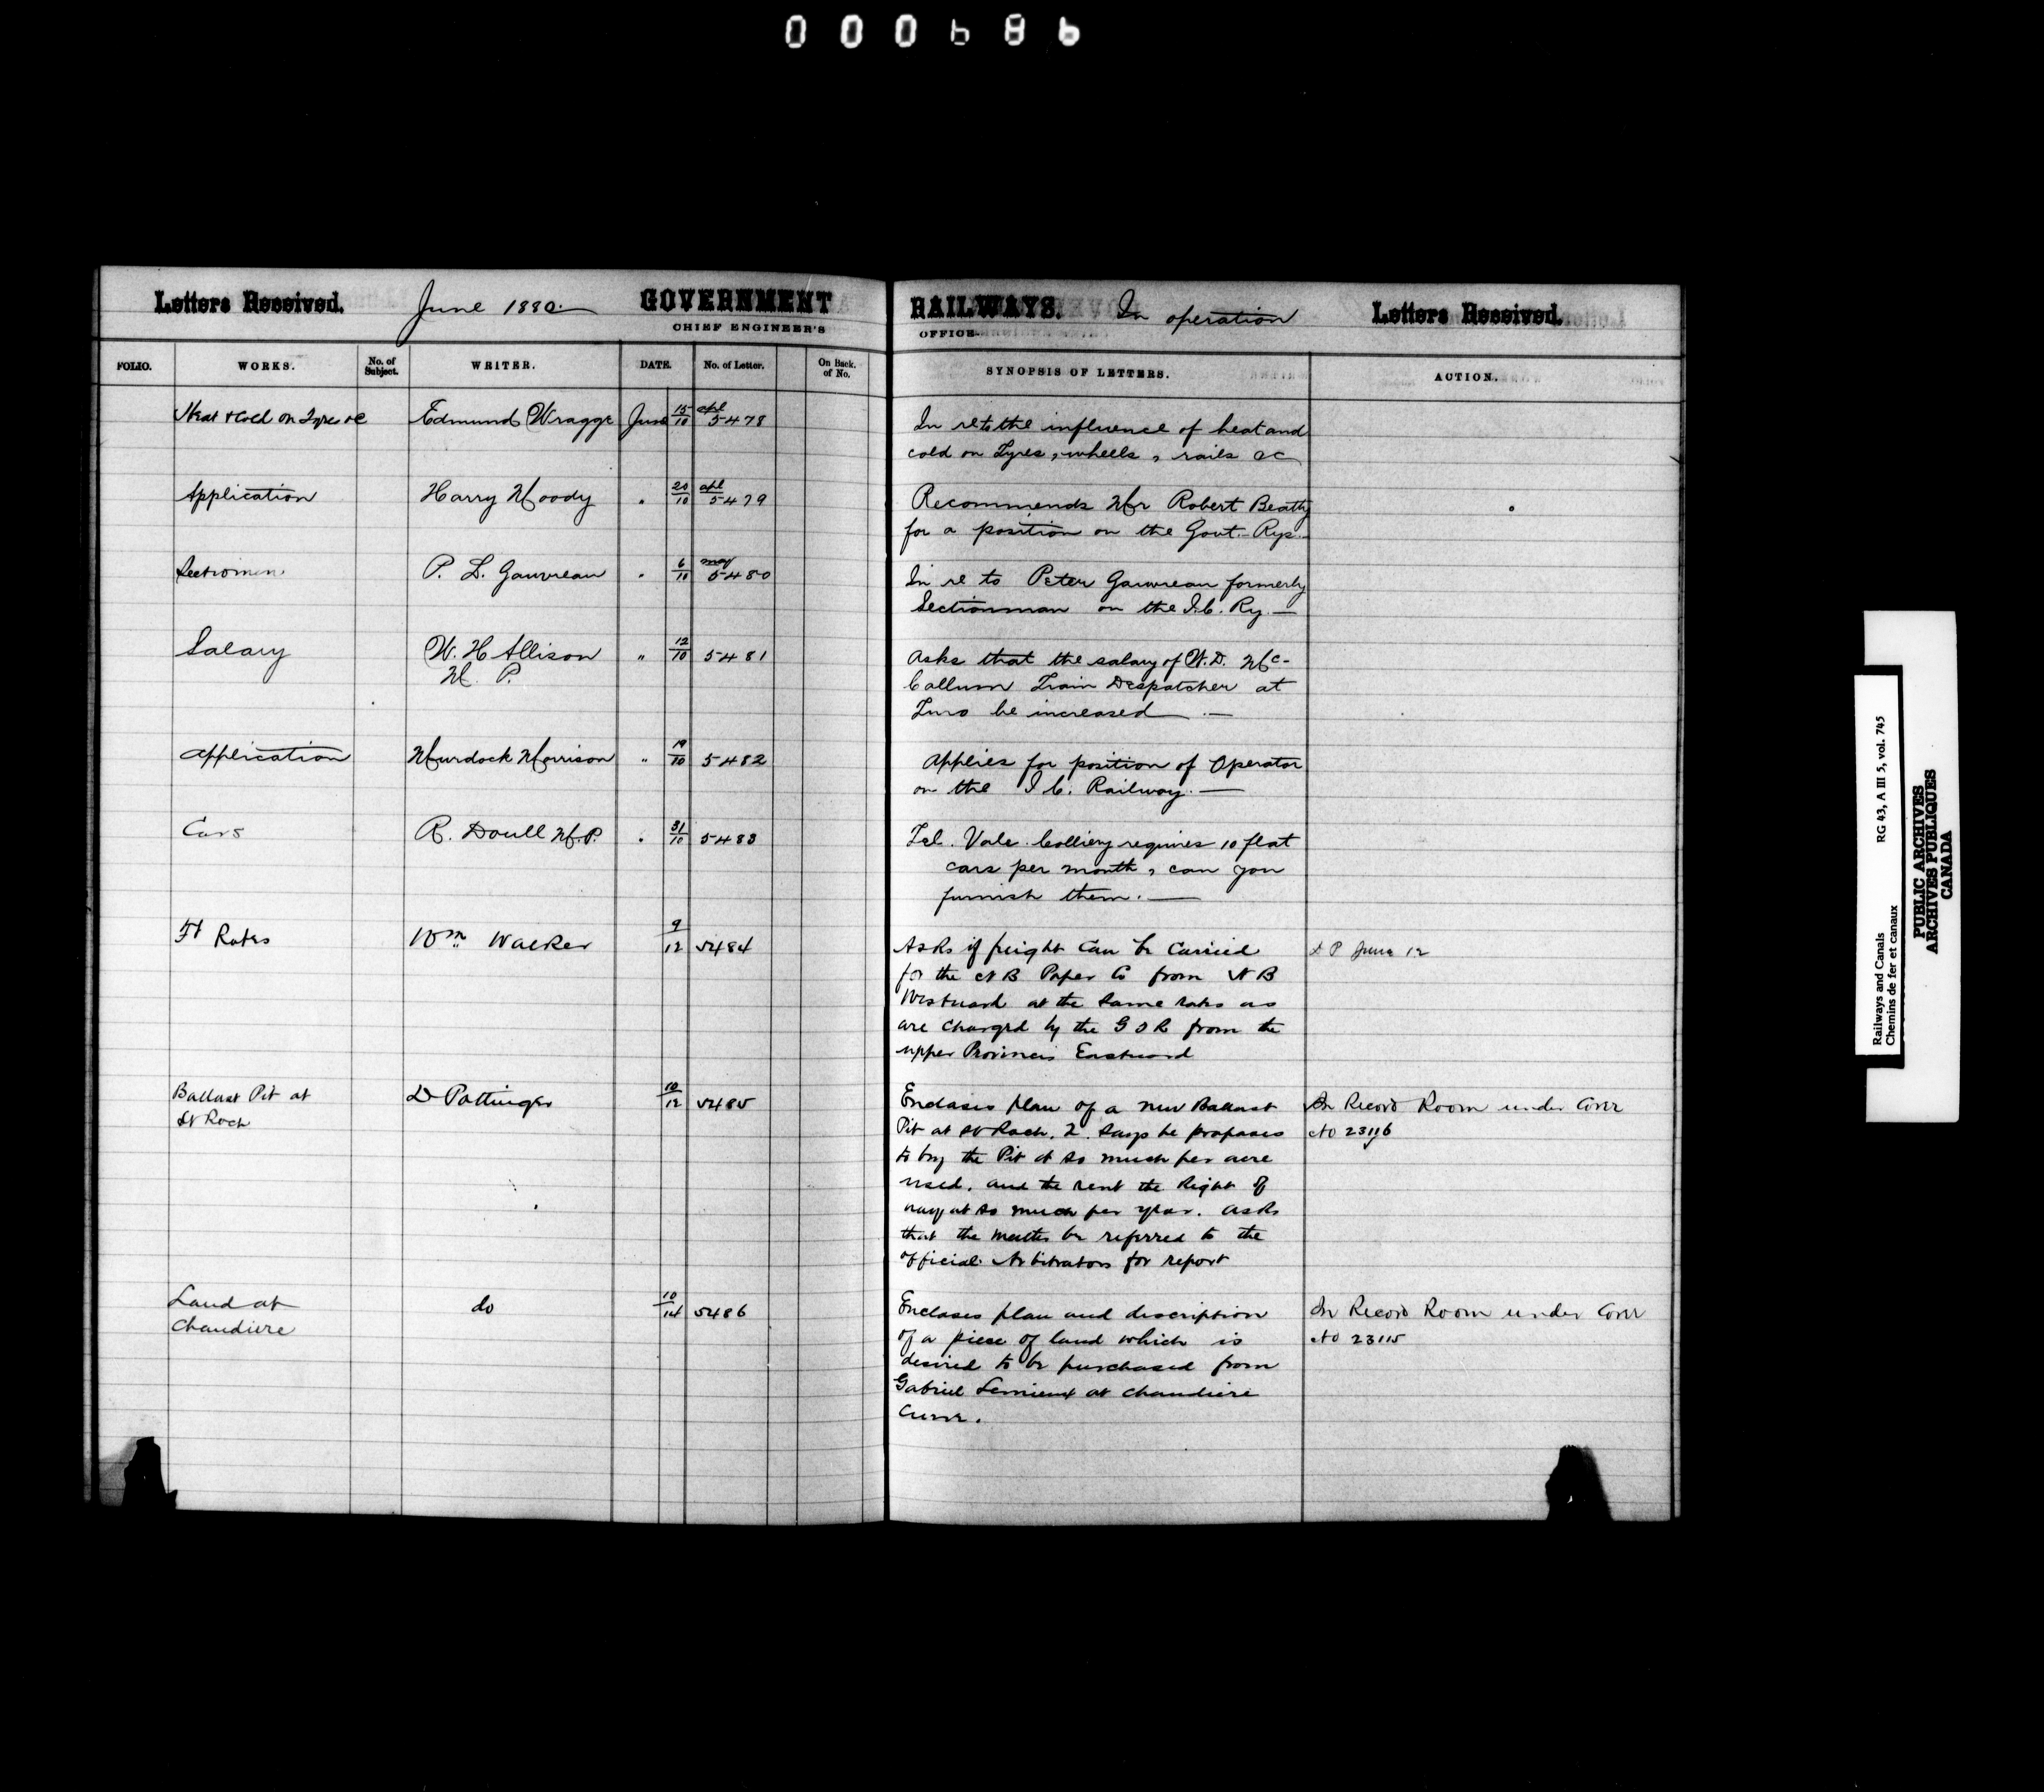 000686
Letters Received. June 1880 GOVERNMENT RAILWAYS. In operation Letters Received.
CHIEF ENGINEER'S OFFICE.
FOLIO. WORKS. No. of Subject. WRITER. DATE. No. of Letter. On Back of No. SYNOPSIS OF LETTERS. ACTION.
Heat & Cold on Tyres &c Edmund Wragge June 15/10 apl 5478 In re to the influence of heat and
cold on Tyres, wheels, rails &c
Application Harry Moody " 20/10 apl 5479 Recommends Mr Robert Beatty
for a position on the Govt. Rys.
Sectionmen P. L. Gauvreau " 6/10 may 5480 In re to Peter Gauvreau formerly
Sectionman on the I.C. Ry. —
Salary W. H Allison " 12/10 5481 Asks that the salary of W. D. Mc-
M. P. Callum Train Despatcher at
Truro be increased —
Application Murdock Morrison " 19/10 5482 Applies for position of Operator
on the I C. Railway. —
Cars R. Doull M.P. " 31/10 5483 Tel. Vale Colliery requires 10 flat
cars per month, can you
furnish them. —
Ft Rates Wm Walker 9/12 5484 Asks if freight can be carried D P June 12
for the N B Paper Co from N B
Westward at the same rates as
are charged by the G T R from the
upper Provinces Eastward
Ballast Pit at D Pottinger 10/12 5485 Encloses plan of a new Ballast In Record Room under Cover
St Roch Pit at St Roch, Q. Says he proposes No 23116
to buy the Pit at so much per acre
used, and the rent the Right of
way at so much per year. Asks
that the matter be referred to the
official Arbitrators for report
Land at do 10/14 5486 Encloses plan and description In Record Room under Cover
Chaudiere of a piece of land which is No 23115
desired to be purchased from
Gabriel Lemieux at Chaudiere
Curve.
Railways and Canals RG 43, A III 5, vol. 745
Chemins de fer et canaux
PUBLIC ARCHIVES
ARCHIVES PUBLIQUES
CANADA